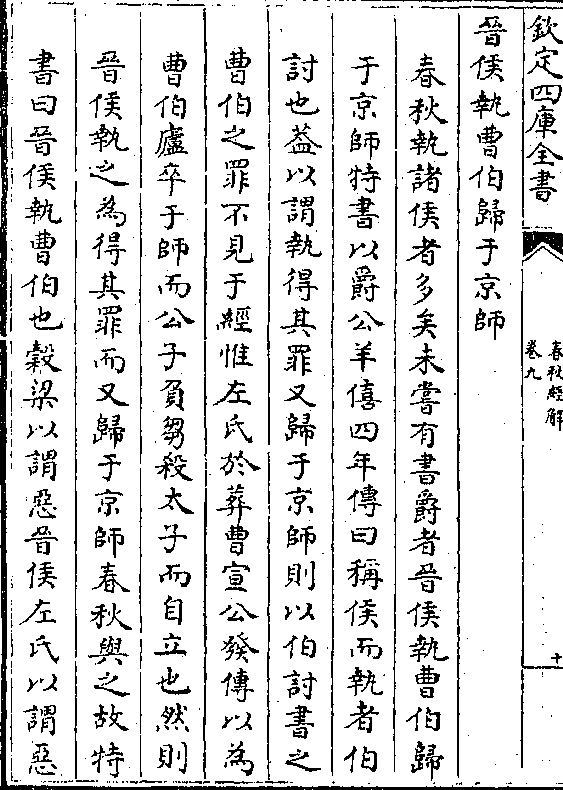 欽定四庫全書
春秋經解
卷九
十
晉侯執曹伯歸于京師
春秋執諸侯者多矣未嘗有書爵者晉侯執曹伯歸
于京師特書以爵公羊僖四年傳曰稱侯而執者伯
討也葢以謂執得其罪又歸于京師則以伯討書之
曹伯之罪不見于經惟左氏於葬曹宣公發傳以為
曹伯廬卒于師而公子負芻殺太子而自立也然則
晉侯執之為得其罪而又歸于京師春秋與之故特
書曰晉侯執曹伯也榖梁以謂惡晉侯左氏以謂惡